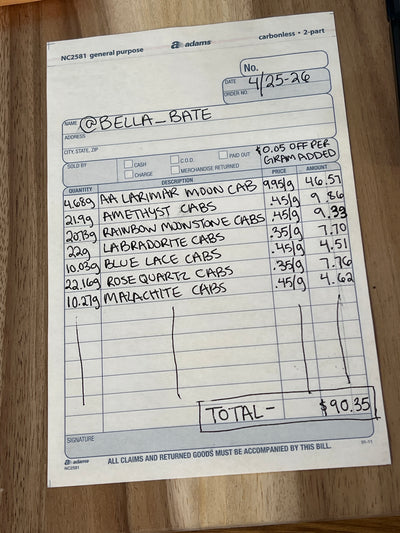 NC2581 general purpose adams carbonless • 2-part
No.
DATE 4/25-26
ORDER NO.
NAME @BELLA_BATE
ADDRESS
CITY, STATE, ZIP
SOLD BY CASH C.O.D. PAID OUT $0.05 OFF PER
CHARGE MERCHANDISE RETURNED GRAM ADDED
QUANTITY DESCRIPTION PRICE AMOUNT
4.68g AA LARIMAR MOON CAB 9.95/g 46.57
21.9g AMETHYST CABS .45/g 9.86
20.73g RAINBOW MOONSTONE CABS .45/g 9.33
22g LABRADORITE CABS .35/g 7.70
10.03g BLUE LACE CABS .45/g 4.51
22.16g ROSE QUARTZ CABS .35/g 7.76
10.27g MALACHITE CABS .45/g 4.62
TOTAL- $90.35
SIGNATURE
adams ALL CLAIMS AND RETURNED GOODS MUST BE ACCOMPANIED BY THIS BILL.
NC2581